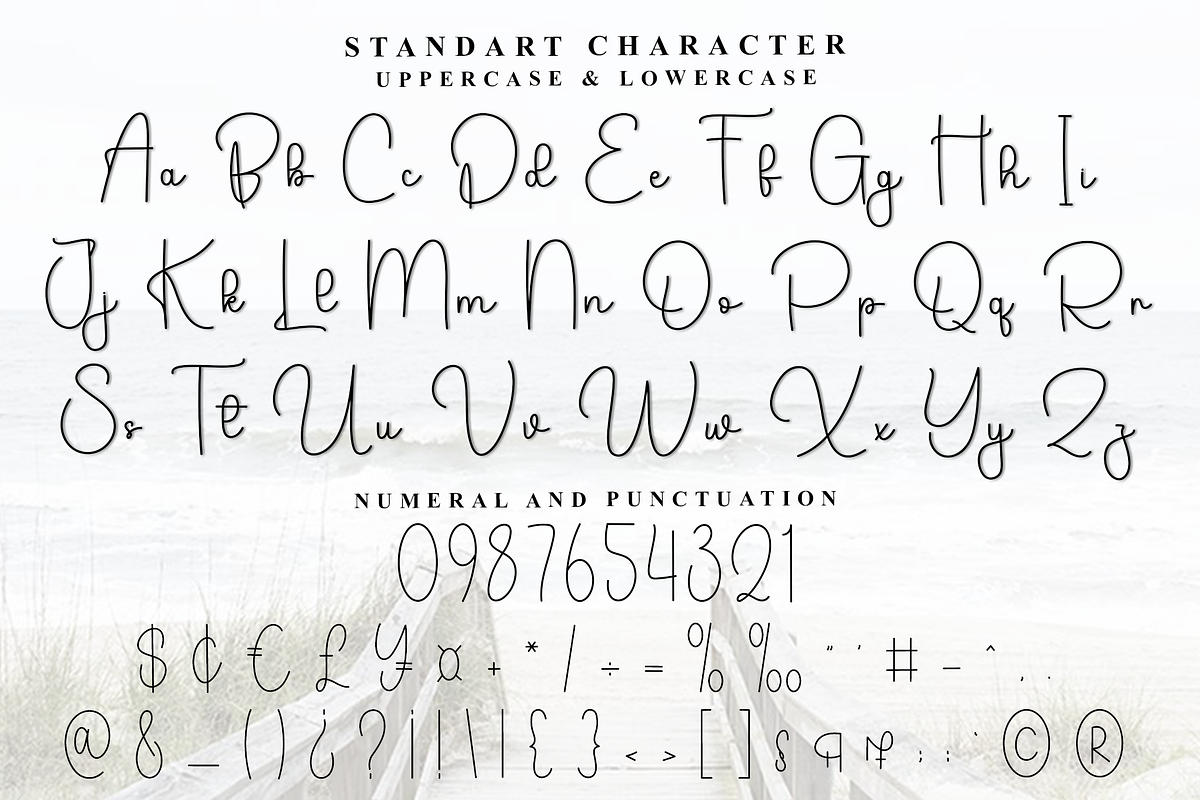 STANDART CHARACTER
UPPERCASE & LOWERCASE
Aa Bb Cc Dd Ee Ff Gg Hh Ii
Jj Kk Ll Mm Nn Oo Pp Qq Rr
Ss Tt Uu Vv Ww Xx Yy Zz
NUMERAL AND PUNCTUATION
0987654321
$ ¢ € £ ¥ ¤ + * / ÷ = % ‰ " ' # – ^ , .
@ & _ ( ) ¿ ? ¡ ! \ | { } < > [ ] § ¶ ; : ` © ®